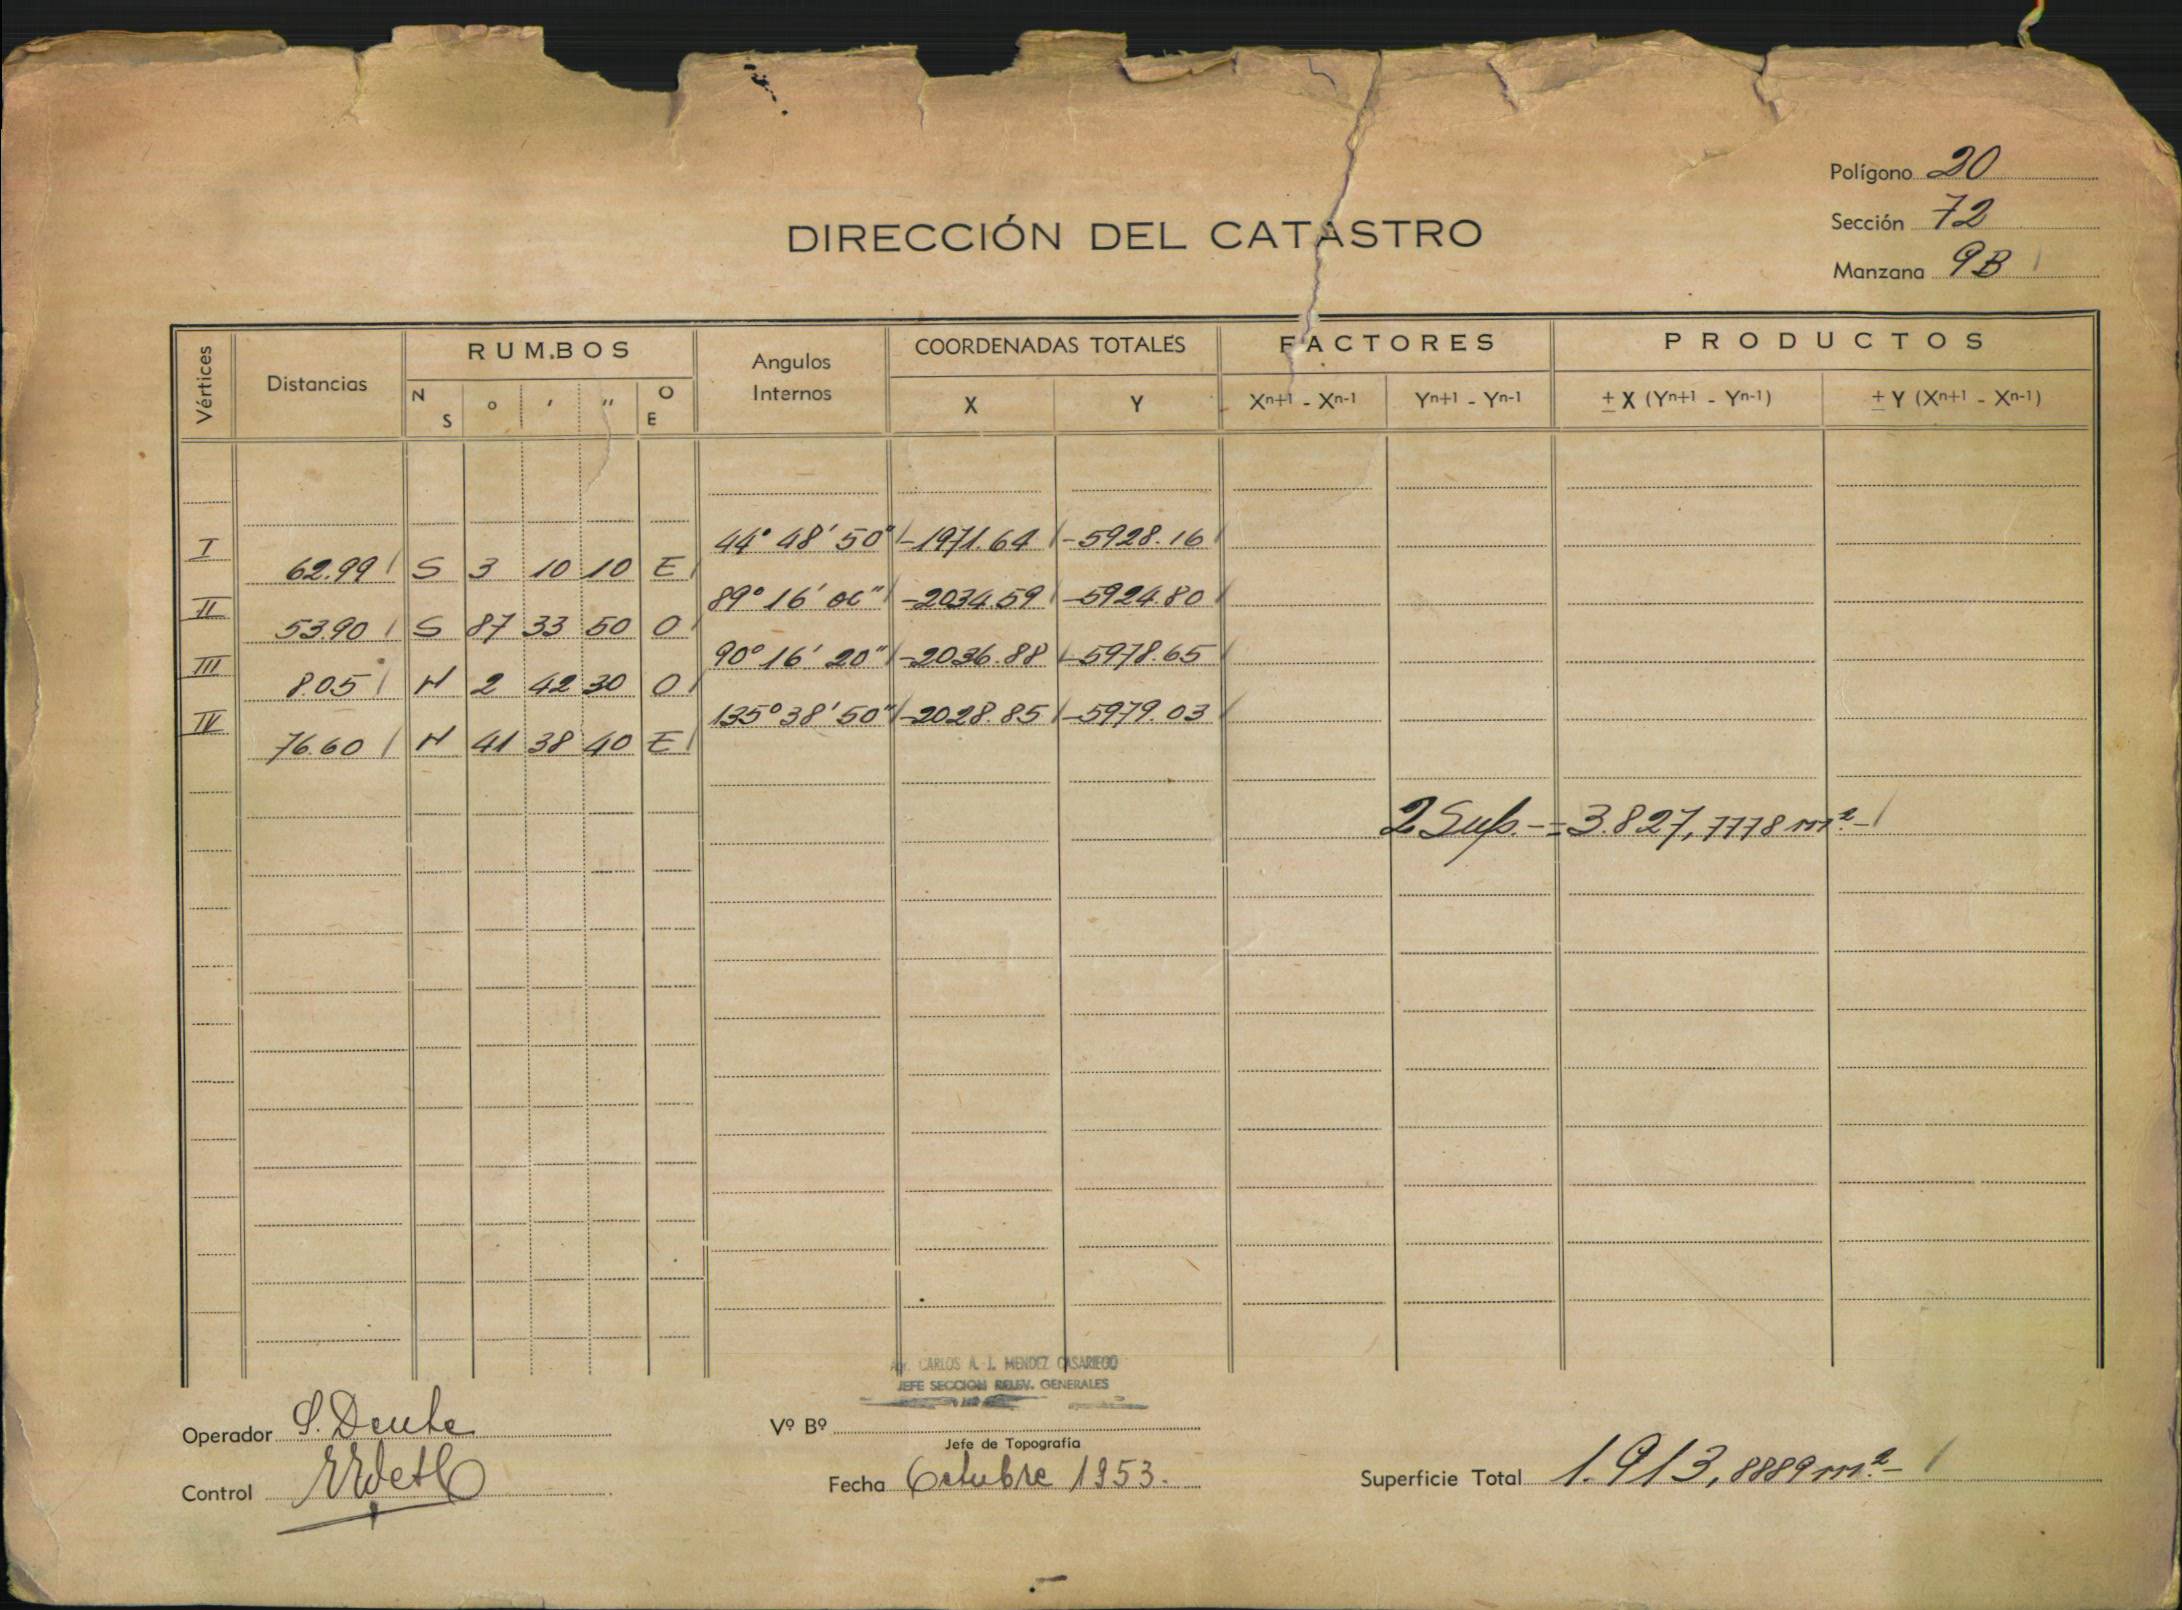 Polígono 20
DIRECCIÓN DEL CATASTRO
Sección 72
Manzana 9B
Vértices Distancias RUM.BOS N S ° ' " O E Angulos Internos COORDENADAS TOTALES X Y FACTORES Xn+1 - Xn-1 Yn+1 - Yn-1 PRODUCTOS ± X (Yn+1 - Yn-1) ± Y (Xn+1 - Xn-1)
I 44° 48' 50" -1971.64 -5928.16
62.99 S 3 10 10 E
II 89° 16' 00" -2034.59 -5924.80
53.90 S 87 33 50 O
III 90° 16' 20" -2036.88 -5978.65
8.05 N 2 42 30 O
IV 135° 38' 50" -2028.85 -5979.03
76.60 N 41 38 40 E
2 Sup.- = 3.827,7778 m².-
CARLOS A. J. MENDEZ CASARIEGO
JEFE SECCION RELEV. GENERALES
Operador S. Deube
Vº Bº
Jefe de Topografía
Control
Fecha Octubre 1953.
Superficie Total 1.913,8889 m².-